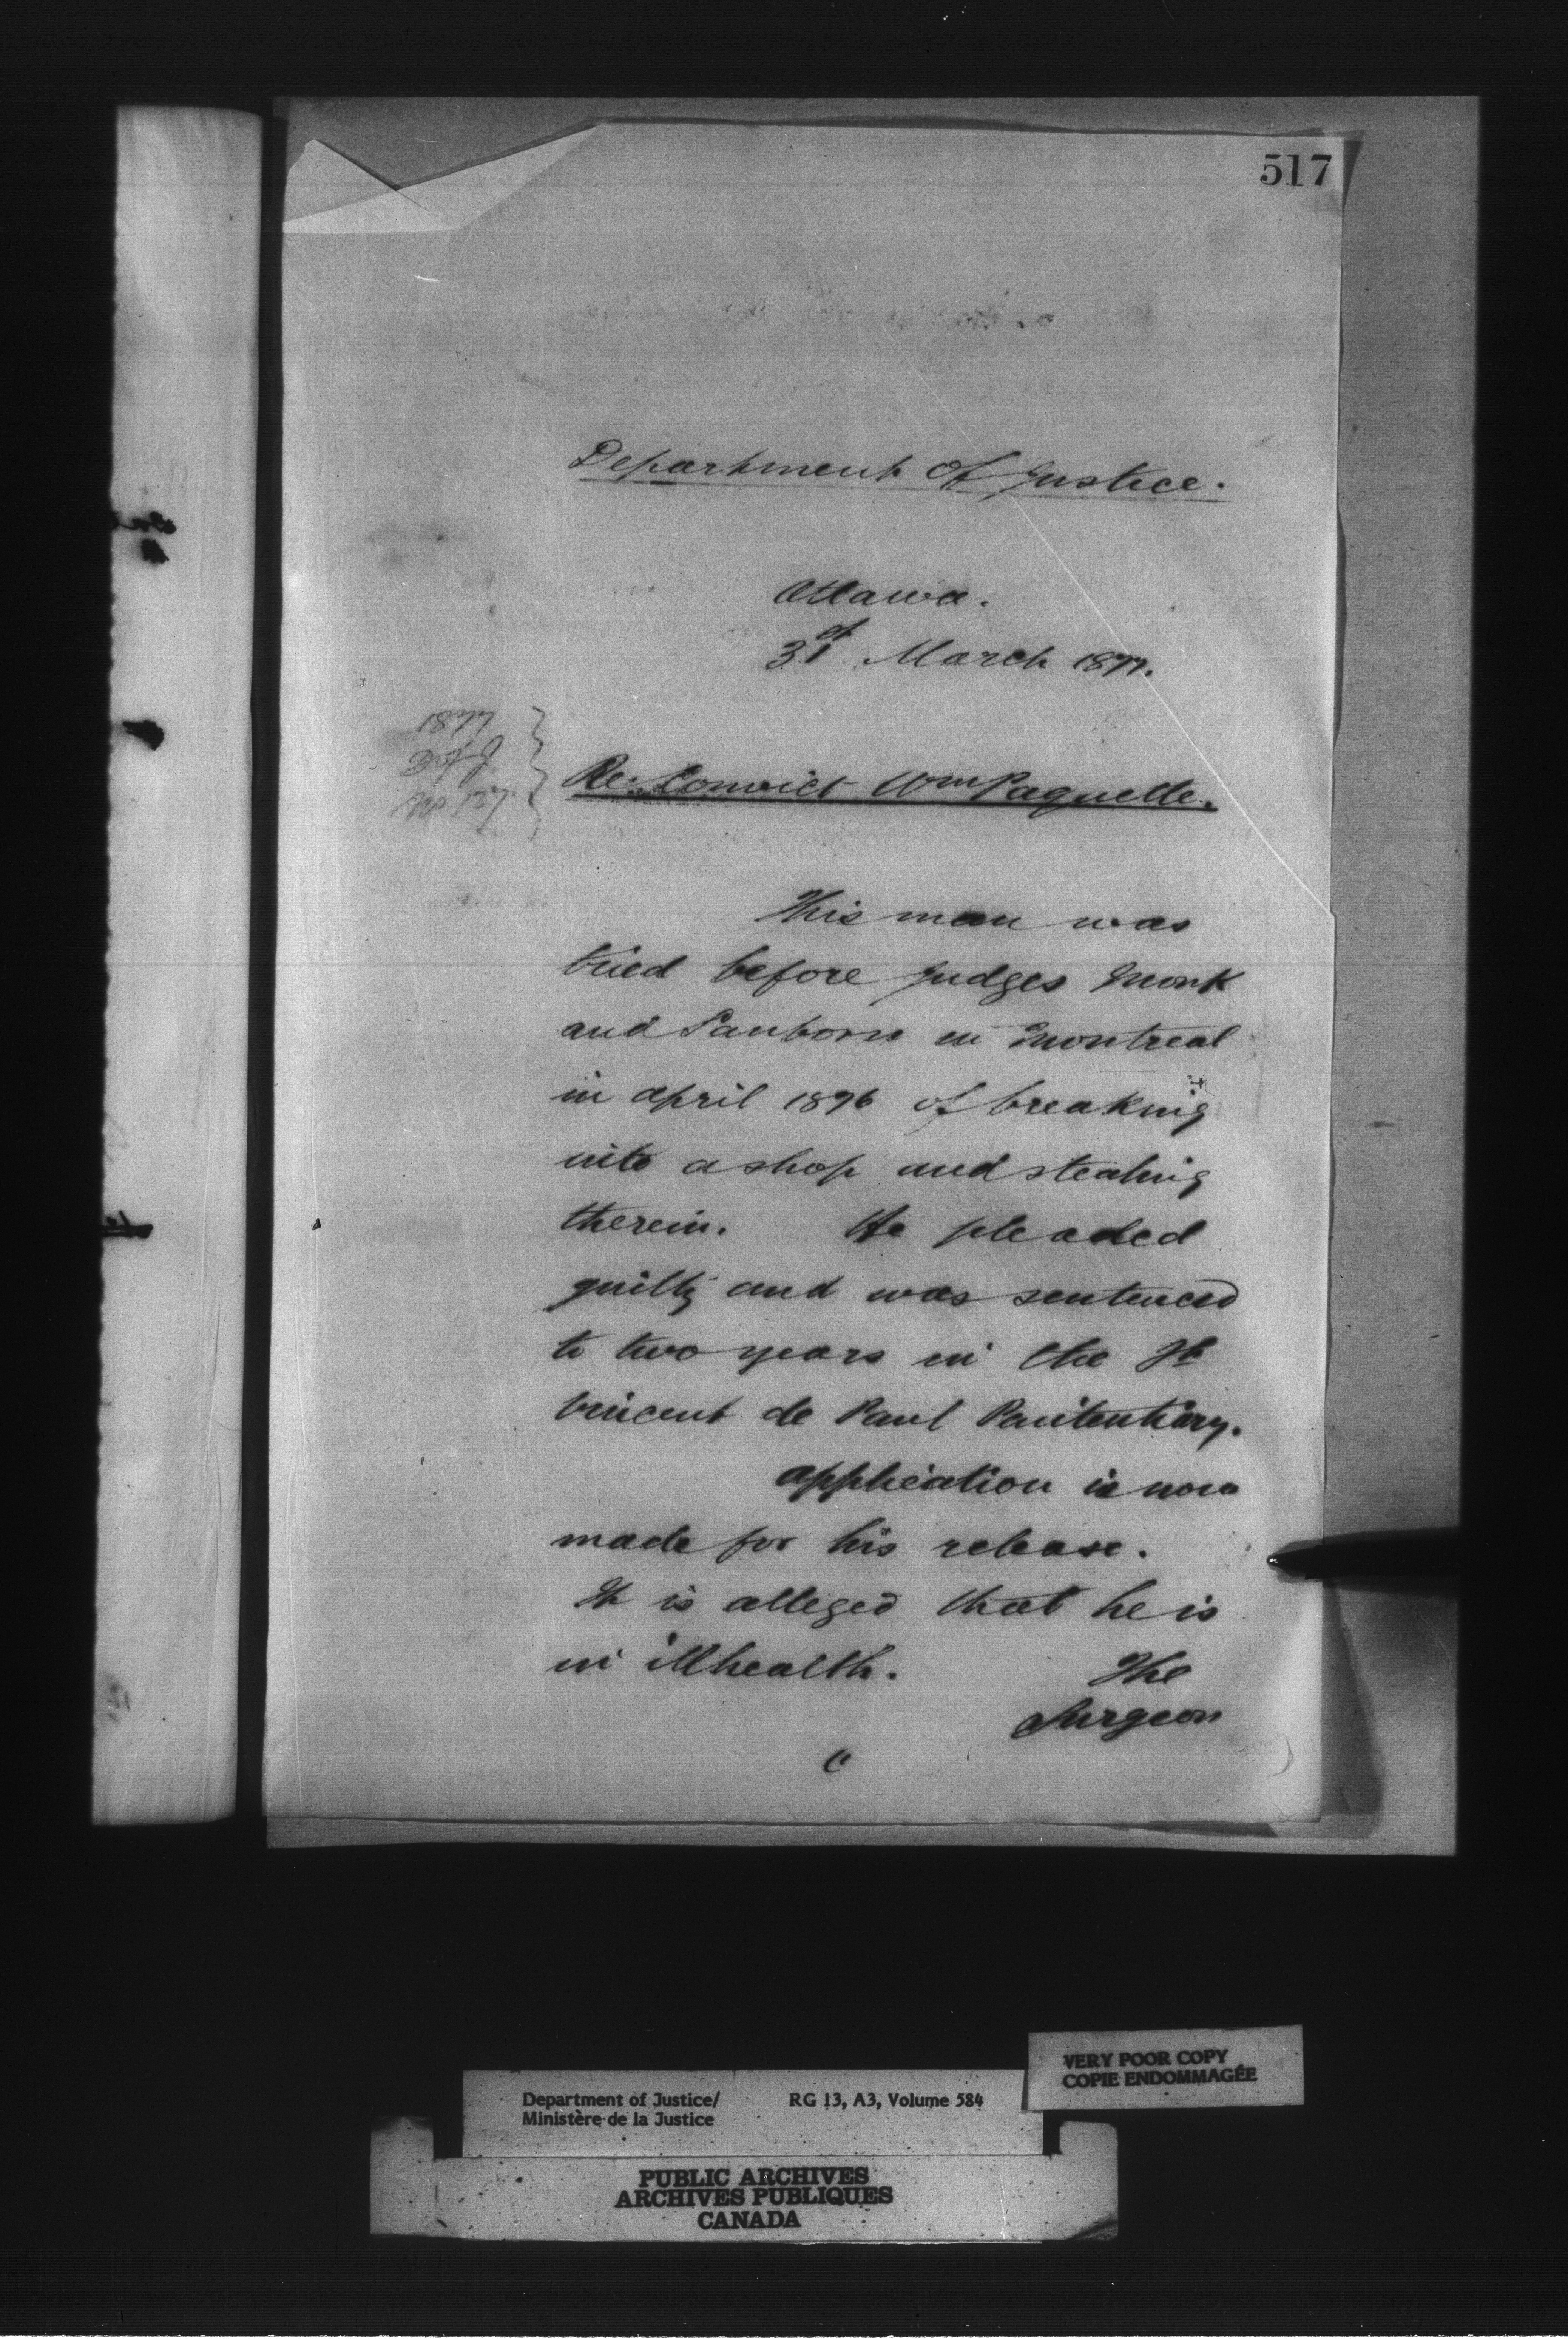 517
Department of Justice.
Ottawa.
31st March 1877.
1877
D of J
No 127.
Re: Convict Wm Paquette.
This man was
tried before Judges Monk
and Sanborn in Montreal
in April 1876 of breaking
into a shop and stealing
therein. He pleaded
guilty and was sentenced
to two years in the St
Vincent de Paul Penitentiary.
Application is now
made for his release.
It is alleged that he is
in ill health. The
Surgeon
VERY POOR COPY
COPIE ENDOMMAGÉE
Department of Justice/ RG 13, A3, Volume 584
Ministère de la Justice
PUBLIC ARCHIVES
ARCHIVES PUBLIQUES
CANADA